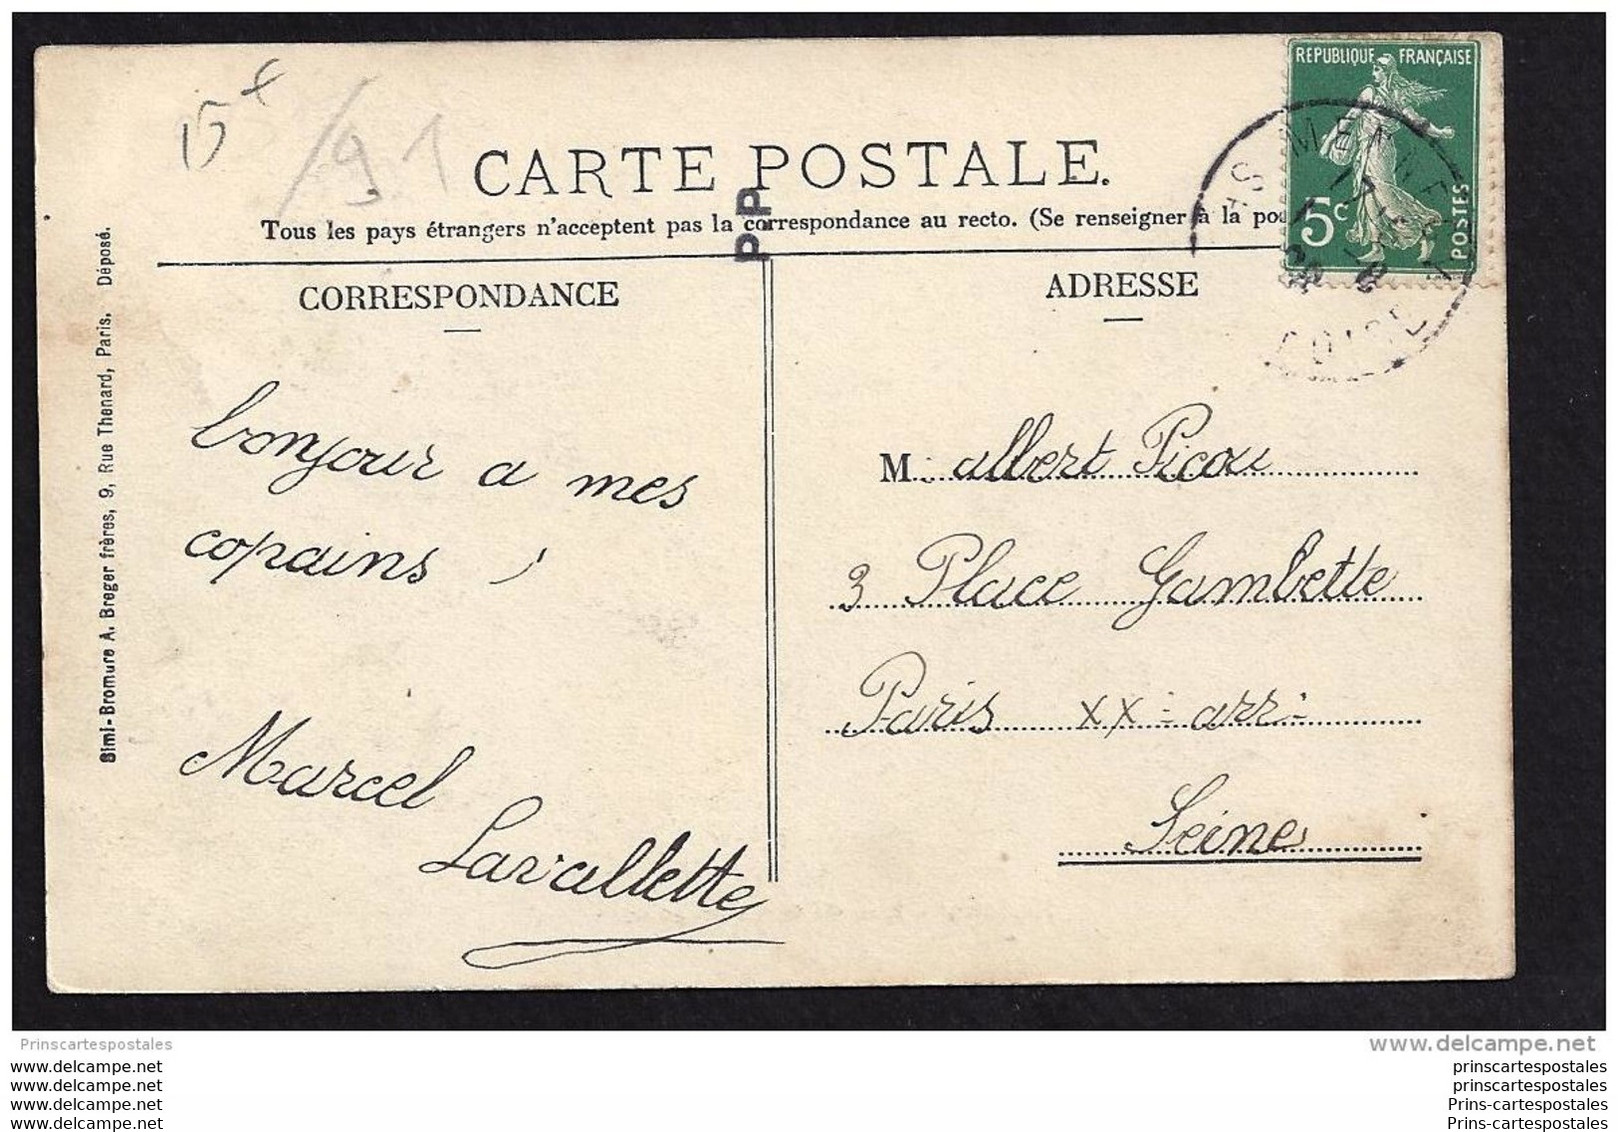 15 f
/91
CARTE POSTALE.
PP
Tous les pays étrangers n'acceptent pas la correspondance au recto. (Se renseigner à la pos
REPUBLIQUE FRANÇAISE
5c
POSTES
CORRESPONDANCE
ADRESSE
Simi-Bromure A. Breger frères, 9, Rue Thenard, Paris. Déposé.
bonjour a mes
copains
Marcel
Lavallette
M. albert Picou
3 Place Gambette
Paris XX arr
Seine
Prinscartespostales
www.delcampe.net
www.delcampe.net
www.delcampe.net
www.delcampe.net
www.delcampe.net
prinscartespostales
prinscartespostales
Prins-cartespostales
Prins-cartespostales